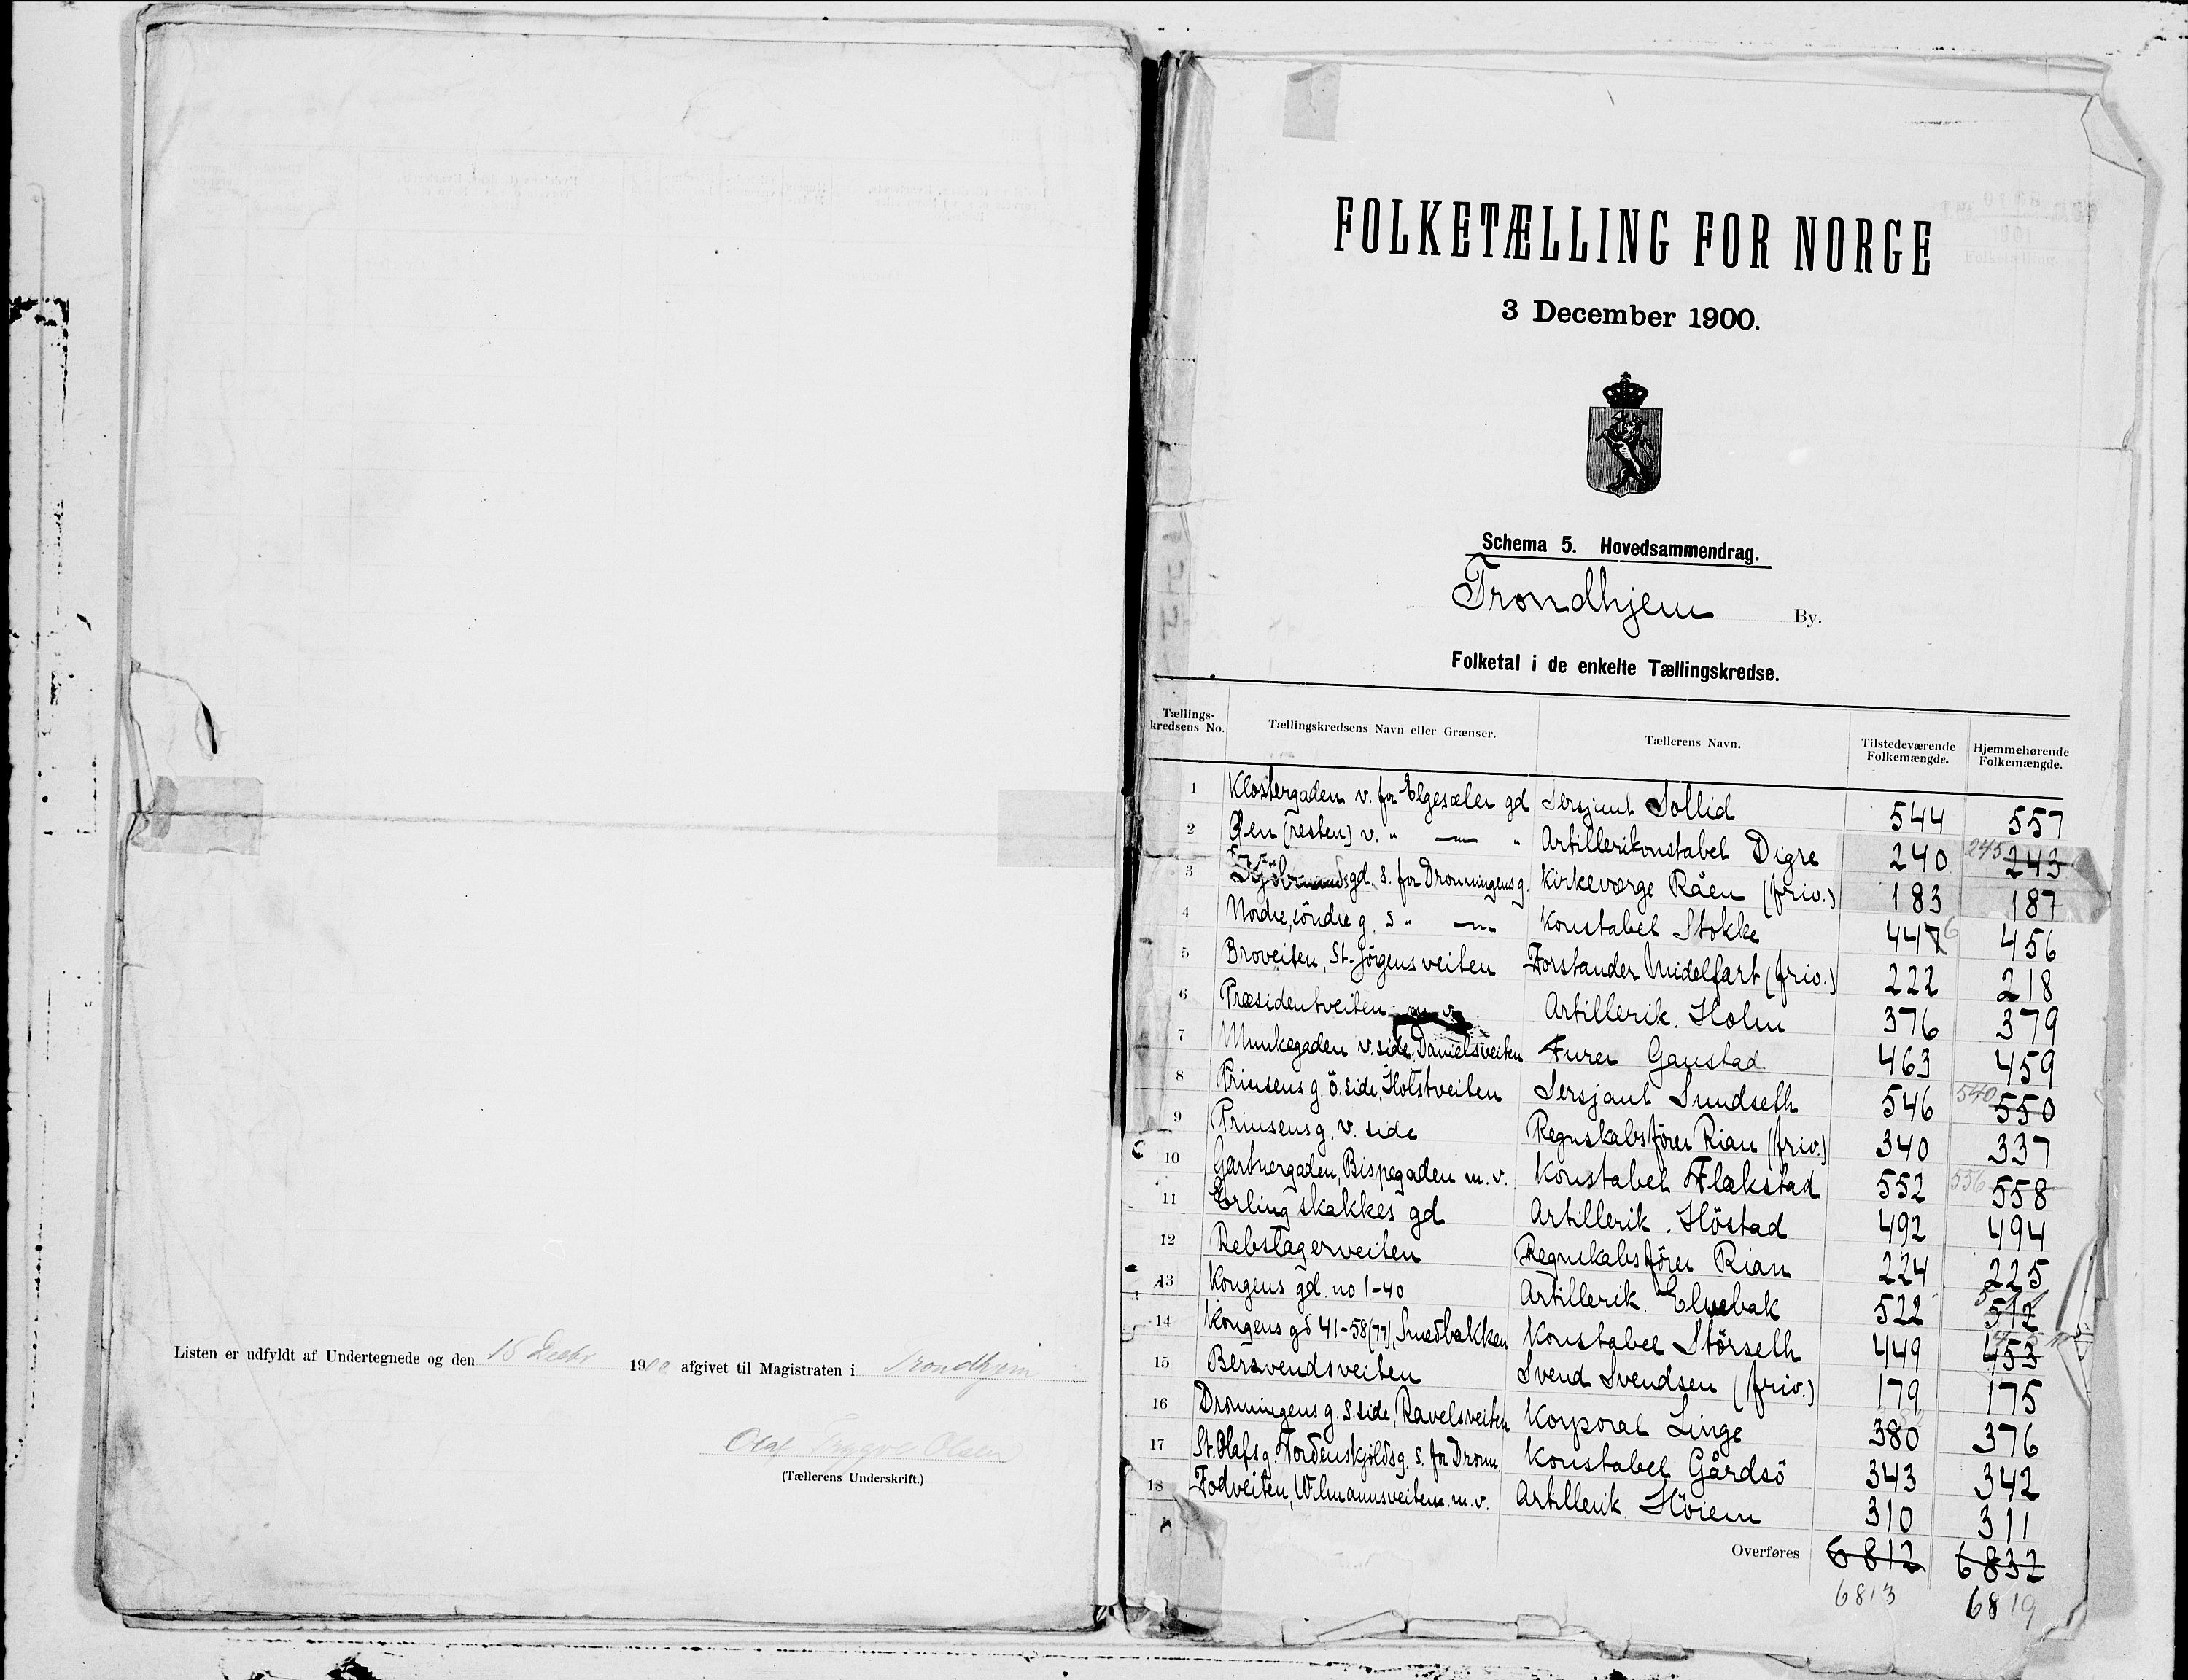 Listen er udfyldt af Undertegnede og den 15 Decbr 1900 afgivet til Magistraten i Trondhjem
Olaf Trygve Olsen
(Tællerens Underskrift.)
FOLKETÆLLING FOR NORGE
3 December 1900.
Schema 5. Hovedsammendrag.
Trondhjem By.
Folketal i de enkelte Tællingskredse.
Tællingskredsens No. Tællingskredsens Navn eller Grænser. Tællerens Navn. Tilstedeværende Folkemængde. Hjemmehørende Folkemængde.
1 Klostergaden v. for Elgesæter gd Sersjant Sollid 544 557
2 Øen (resten) v. " — " Artillerikonstabel Digre 240 245 243
3 gd. s. for Dronningens g. Kirkeværge Råen (friv.) 183 187
4 Nordre, söndre g. s " — Konstabel Stokke 447 6 456
5 Broveiten, St. Jörgensveiten Forstander Midelfart (friv.) 222 218
6 Præsidentveiten m. v. Artillerik. Holm 376 379
7 Munkegaden v. side, Danielsveiten Furer Gaustad 463 459
8 Prinsens g. ö. side, Holstveiten Sersjant Sundseth 546 540 550
9 Prinsens g. v. side Regnskabsförer Rian (friv.) 340 337
10 Gartnergaden, Bispegaden m. v. Konstabel Flakstad 552 556 558
11 Erling skakkes gd Artillerik. Höstad 492 494
12 Rebslagerveiten Regnskabsförer Rian 224 225
13 Kongens gd. no 1-40 Artillerik. 522 512
14 Kongens gd 41-58(77), Smedbakken Konstabel Störseth 449 453
15 Bersvendsveiten Svend Svendsen (friv.) 179 175
16 Dronningens g. s. side, Ravelsveiten Korporal Linge 380 376
17 St. Olafs g. Tordenskjolds g. s. for Dronn. Konstabel Gårdsö 343 342
18 Fodveiten, Wilmannsveiten m. v. Artillerik. Höiem 310 311
Overføres 6812 6832
6813 6819